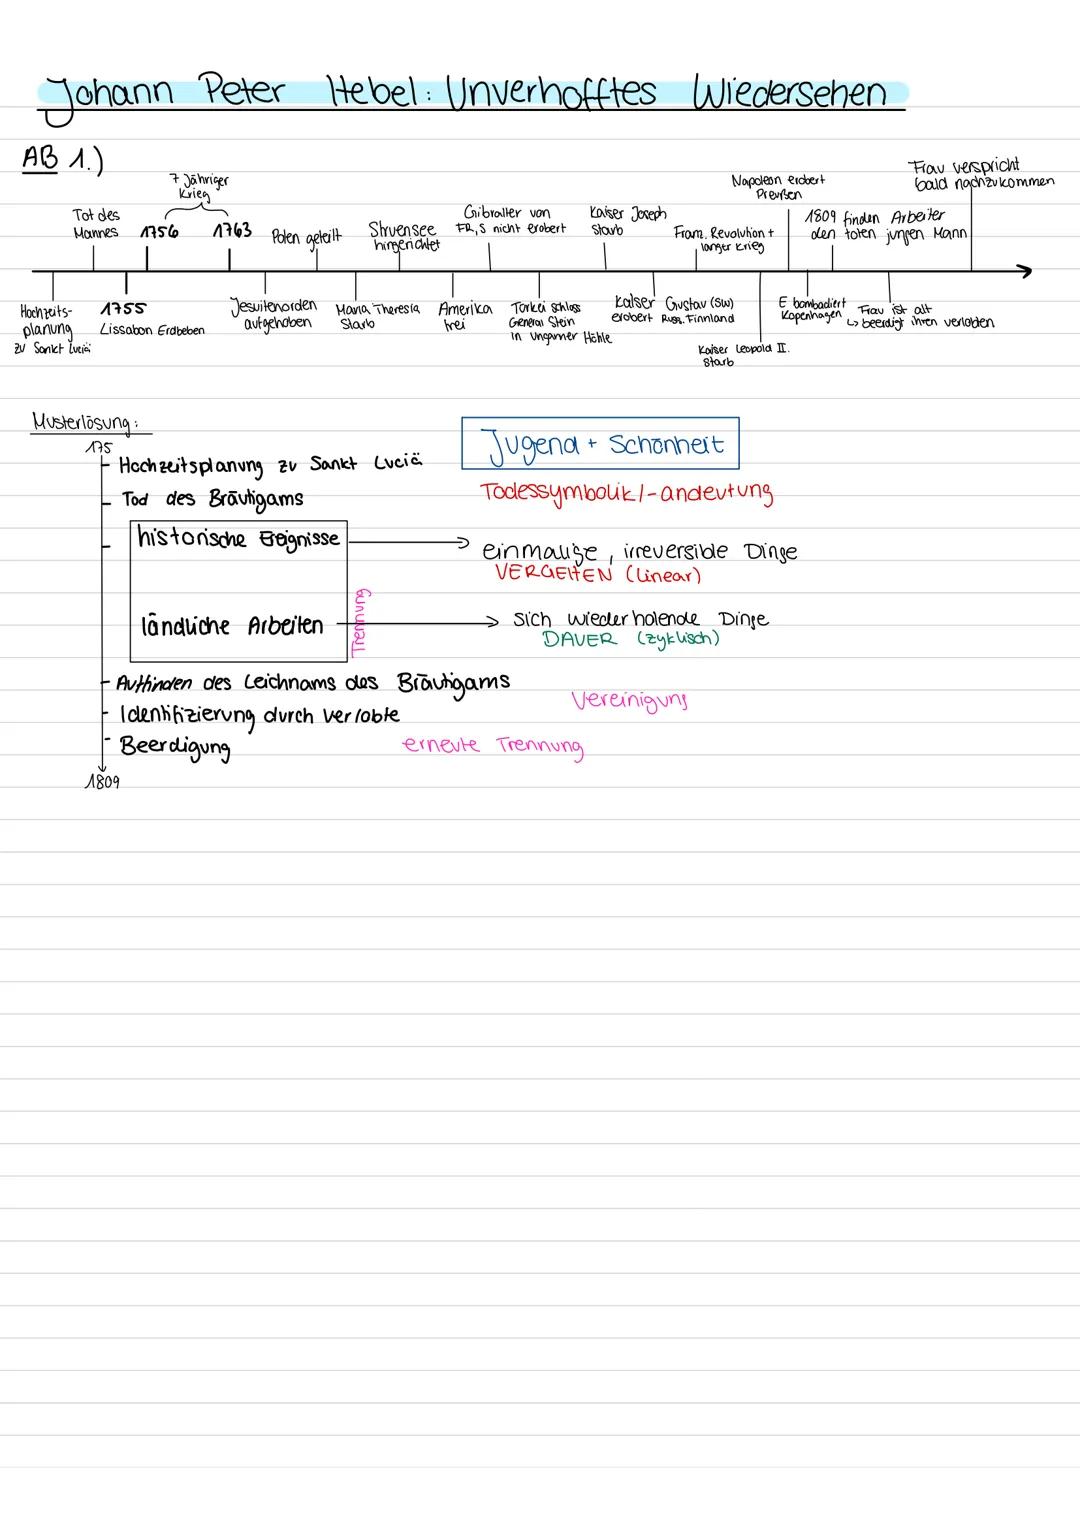 Johann Peter Hebel: Unverhofftes Wiedersehen
AB 1.)
7 Jähriger
Krieg
Tot des
Mannes
1756
1763
Polen geteilt
Struensee
hingerichtet
Gibralter von
FR, S nicht erobert
Kaiser Joseph
starb
Franz. Revolution +
langer Krieg
Napoleon erobert
Preußen
1809 finden Arbeiter
den toten jungen Mann
Frau verspricht
bald nachzukommen
Hochzeits-
planung
zu Sankt Luciä
1755
Lissabon Erdbeben
Jesuitenorden
aufgehoben
Maria Theresia
starb
Amerika
frei
Türkei schloss
General Stein
in Ungarner Höhle
Kaiser Gustav (SW)
erobert Russ. Finnland
Kaiser Leopold II.
starb
E bombadiert
Kopenhagen
Frau ist alt
↳ beerdigt ihren verlobten
Musterlösung:
175
Hochzeitsplanung zu Sankt Luciä
Jugend + Schönheit
Tod des Bräutigams
Todessymbolik/-andeutung
historische Ereignisse
einmalige, irreversible Dinge
VERGEHEN (linear)
Trennung
ländliche Arbeiten
sich wiederholende Dinge
DAUER (zyklisch)
Auffinden des Leichnams des Bräutigams
Vereinigung
Identifizierung durch Verlobte
Beerdigung
erneute Trennung
1809